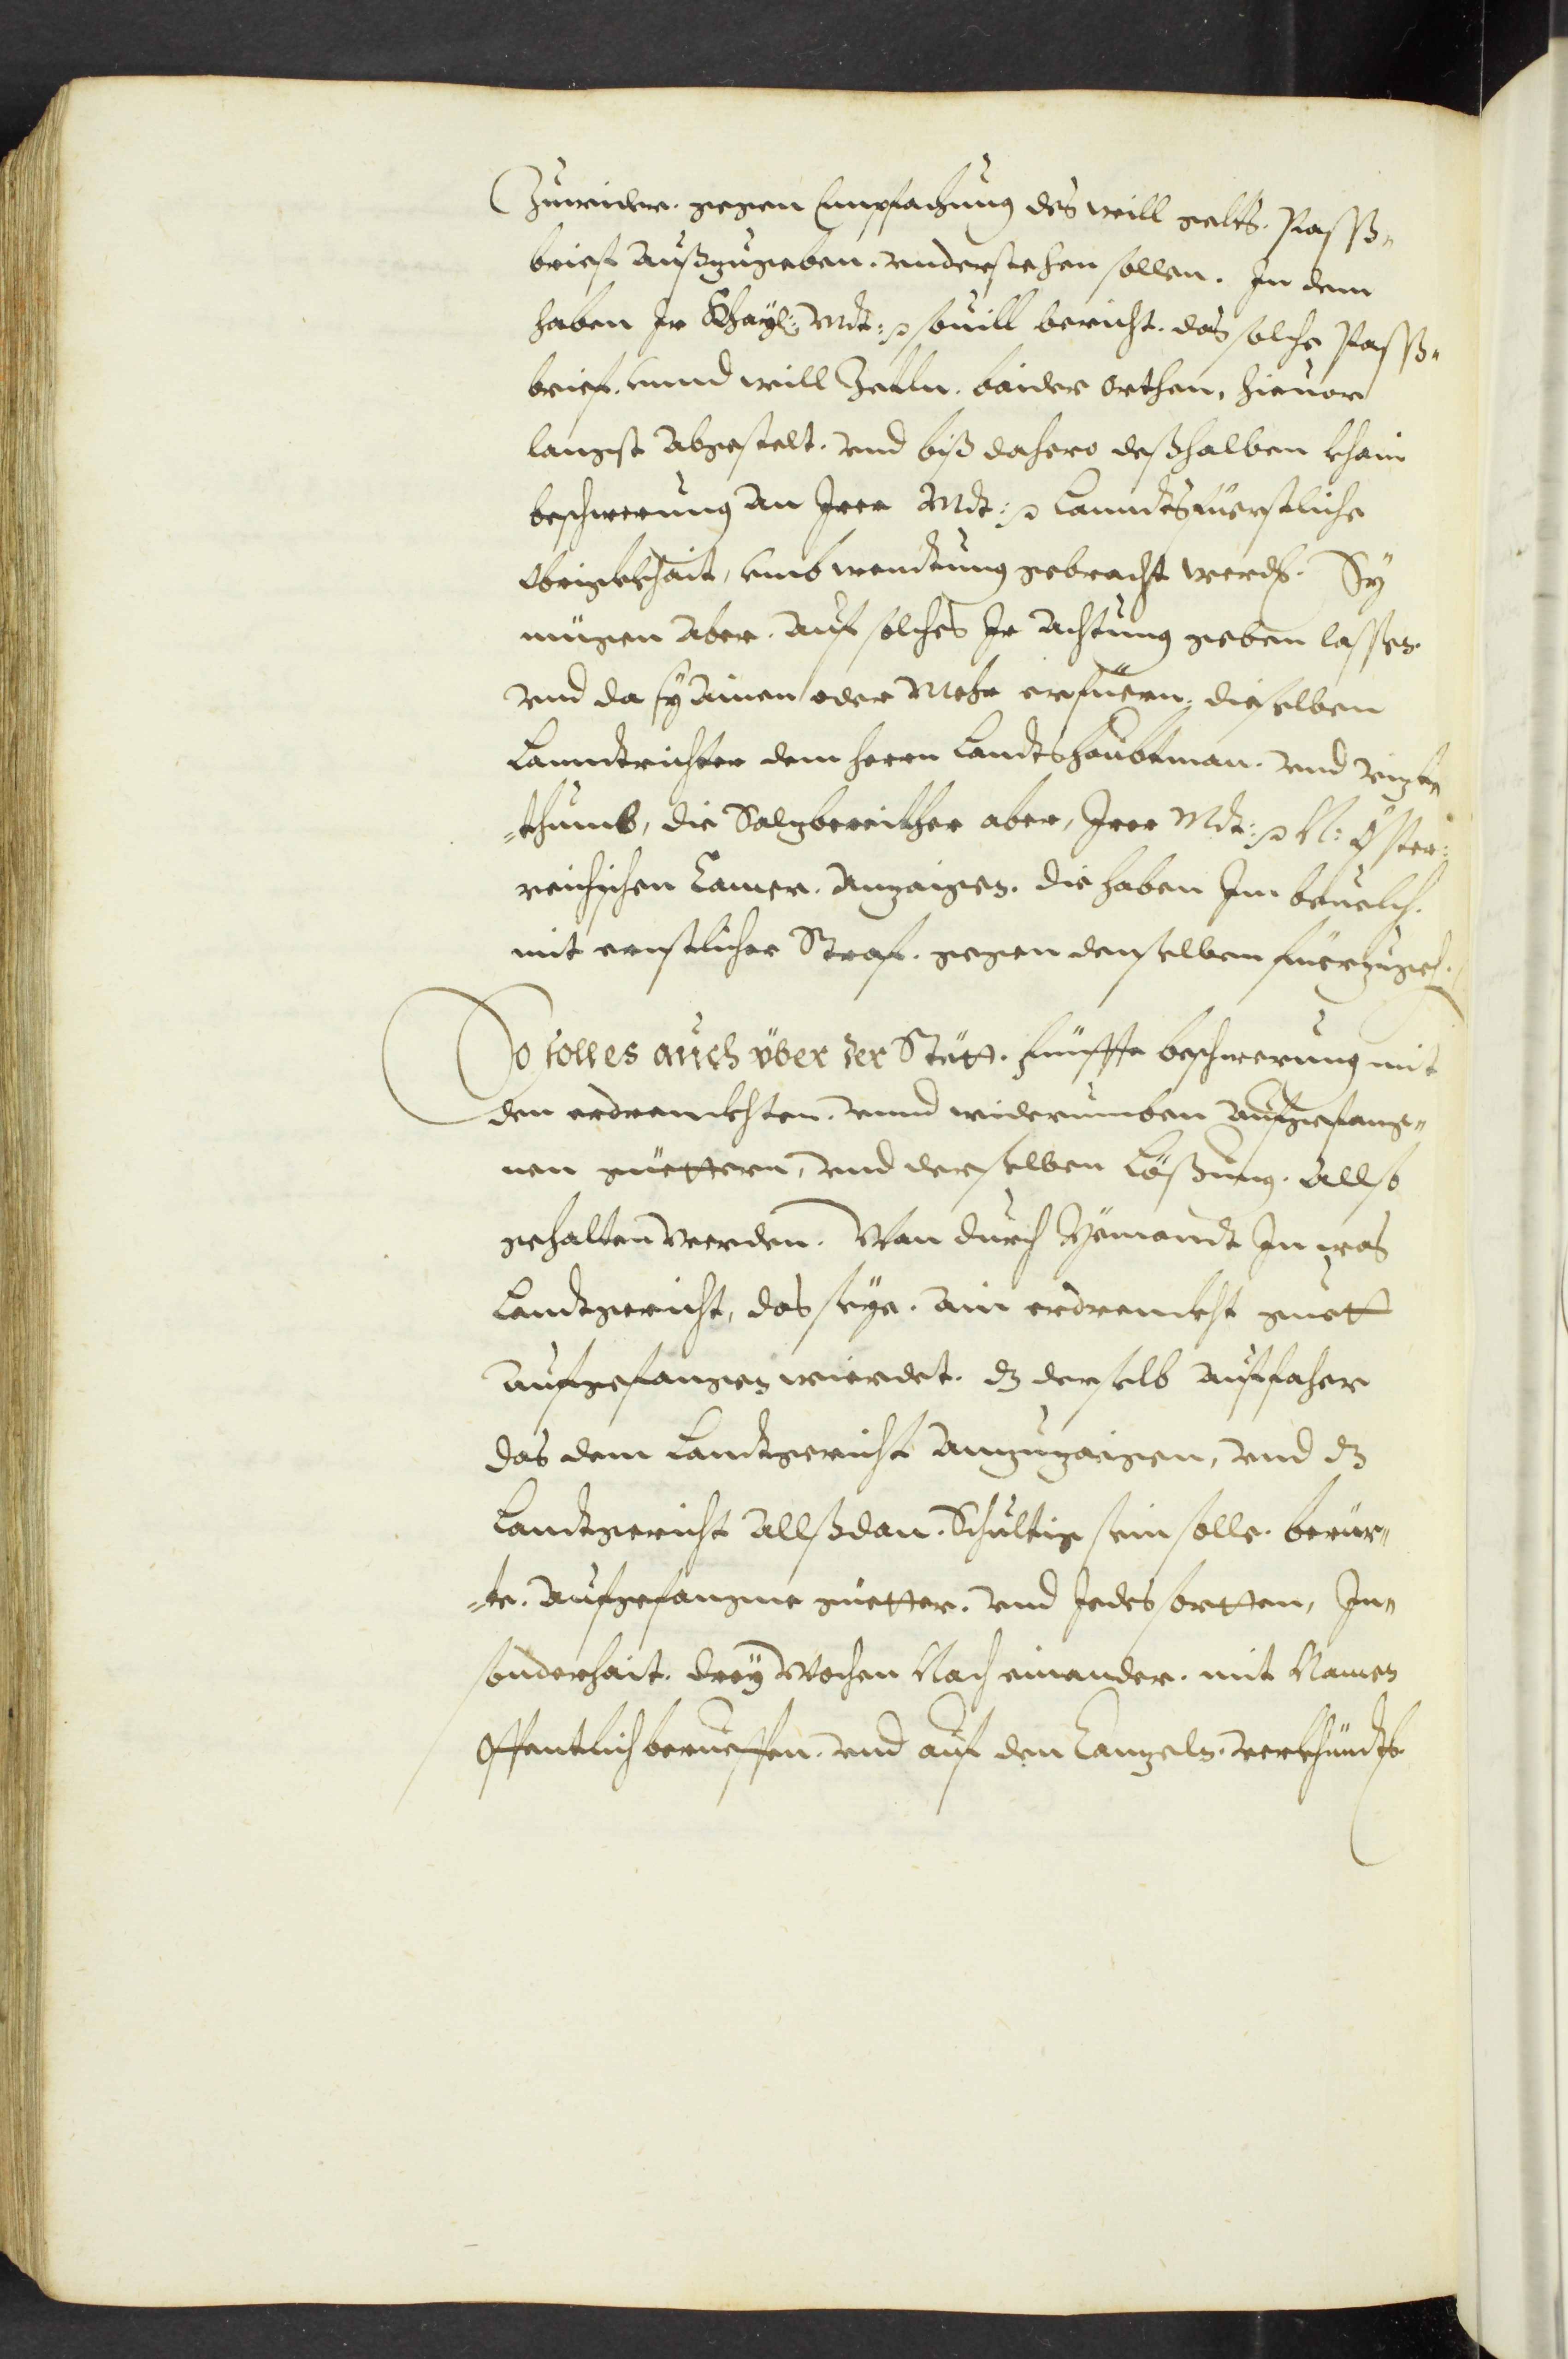 Zuwider. gegen Empfachung des will gelts. Passß„
brief außzugeben. understehen sollen. In dem
haben Ir Khayß: Mdt: souill bericht. das solche Passß„
brief. unnd will Zetln. baider orthen, hieuor
langst abgestelt. und biß dahero deßhalben khain
beschwerung an Irer Mdt: Lanndtsfüerstliche
Obrigkhait, umb wendtung gebracht werdn. Sy
mügen aber. auf solches Ir achtung geben lassen.
und da sy ainen oder Mehr erfüern, dieselben
Lanndtrichter dem herrn Landtshaubtman. und vizt„
„thumb, die Salzbereither aber, Irer Mdt: N: Öster:
reichischen Camer. anzaigen. die haben Im beuelch.
mit ernstlicher Straf. gegen denselben füerzugeh.
So solles auch über der Stätt. fünffte beschwerung mit
den erdrenckhten. unnd widerumben aufgefang„
nen güettern, und derselben Lößung. allso
gehalten werden. Wan durch Yemandt In was
Landtgericht, das seye. ain erdrenckht guett
aufgefangen wierdet. dz derselb auffaher
das dem Landtgericht anzuzaigen, und dz
Landtgericht allßdan. Schultig sein solle. berür„
„te. aufgefangne güetter. und Jedes sortten, In„
sonderhait. drey Wochen Nach einander. mit Namen
offentlich berueffen. und auf den Canzeln. verkhündtn